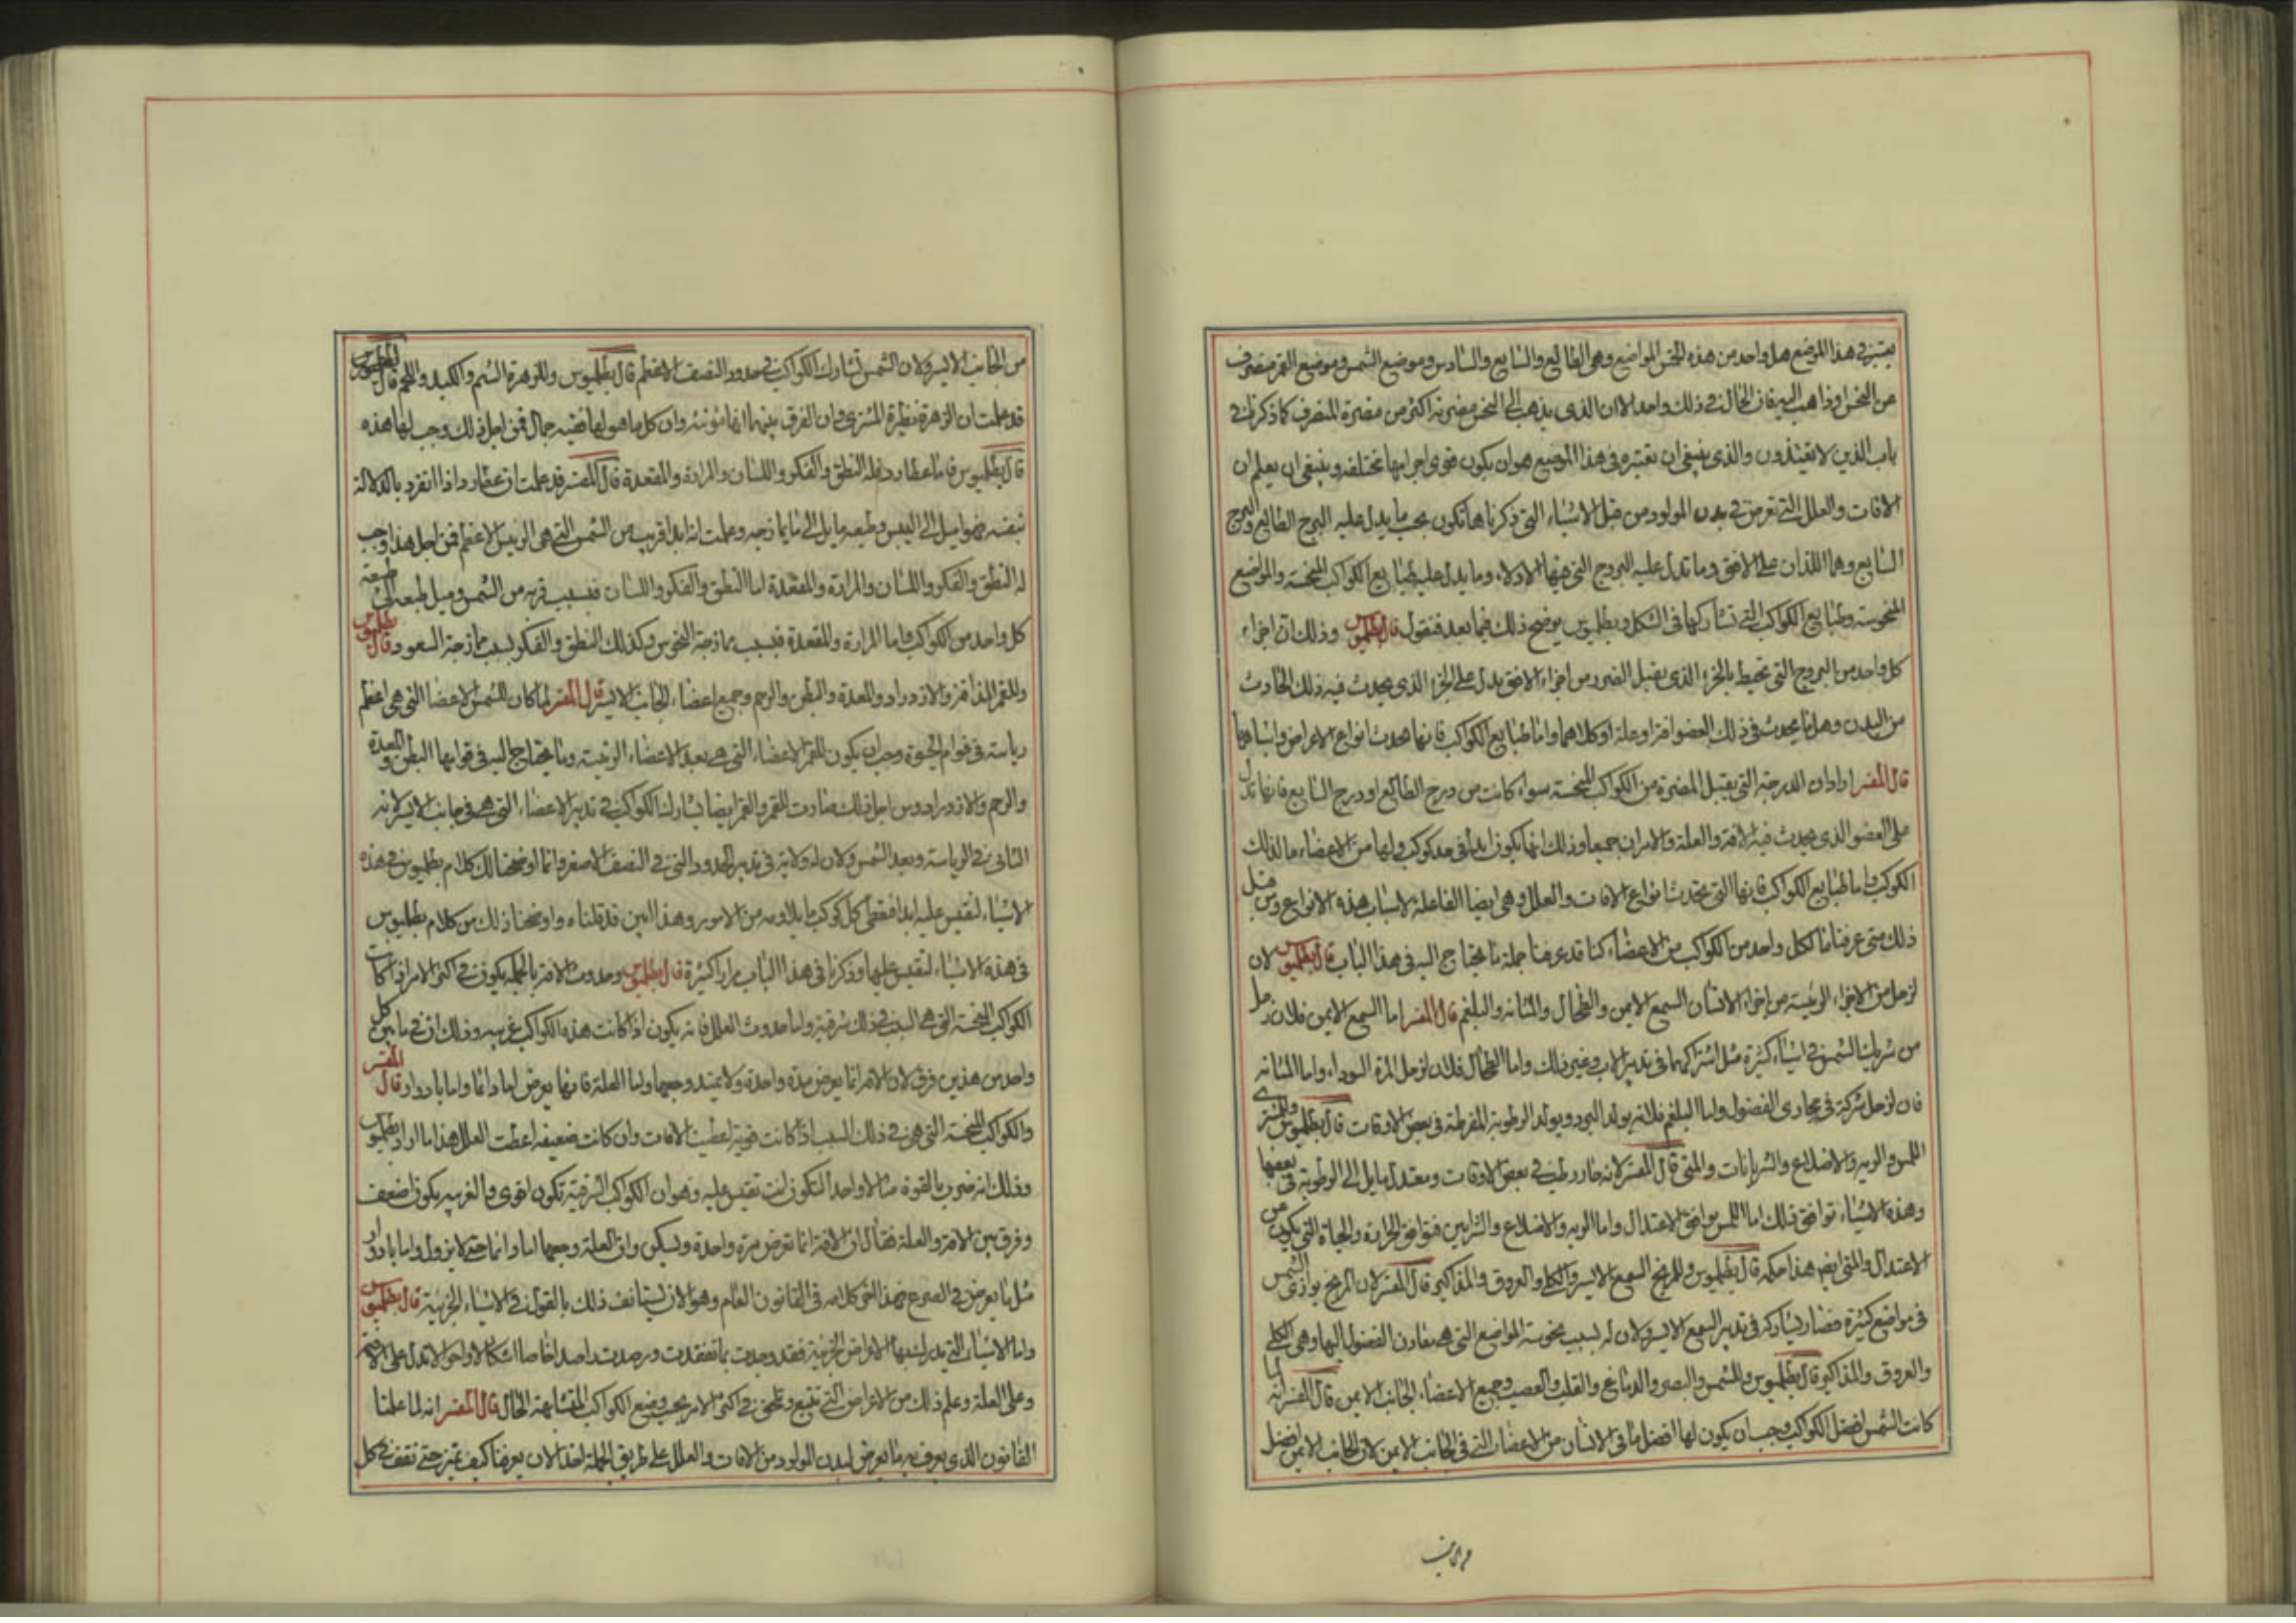 يعتبر في هذا الموضع هل واحد من هذه الخمس المواضع وهي الطالع والسابع والسادس وموضع الشمس وموضع القمر منصرف
عن النحس او ذاهب اليه فان الحال في ذلك واحد الا ان الذي يذهب الى النحس مضرته اكثر من مضرة المنصرف كما ذكر في
باب الذين لا يغتذون والذي ينبغي ان تعتبره في هذا الموضع هو ان يكون قوى اجرامها مختلفه وينبغي ان يعلم ان
الافات والعلل التي تعرض في بدن المولود من قبل الاشياء التي ذكرناها تكون بحسب ما يدل عليه البرج الطالع والبرج
السابع وهما اللذان على الافق وما تدل عليه البروج التي فيها الاولاء وما يدل عليه طبايع الكواكب المنحسة والمواضع
المنحوسة وطبايع الكواكب التي تشاركها في الشكل وبطلميوس يوضح ذلك فيما بعد فنقول قال بطلميوس وذلك ان اجزاء
كل واحد من البروج التي تحيط بالجزء الذي يقبل الضرر من اجزاء الافق يدل على الجزء الذي يحدث فيه ذلك الحادث
من البدن وهل ما يحدث في ذلك العضو افة او علة او كلاهما واما طبايع الكواكب فانها تحدث انواع الاعراض واسبابها
قال المفسر اراد ان الدرجة التي يقبل المضرة من الكواكب المنحسة سواء كانت من درج الطالع او درج السابع فانها تدل
على العضو الذي يحدث فيه الافة والعلة والامران جميعا وذلك انها يكون ابدا في حد كوكب ولها من الاعضاء ما لذلك
الكوكب واما طبايع الكواكب فانها التي تحدث انواع الافات والعلل وهي ايضا الفاعلة لاسباب هذه الانواع ومن قبل
ذلك متى عرفنا ما لكل واحد من الكواكب من الاعضاء كنا قد عرفنا جملة ما يحتاج اليه في هذا الباب قال بطلميوس لان
لزحل من الاجزاء الرئيسة من اجزاء الانسان السمع الايمن والطحال والمثانه والبلغم قال المفسر اما السمع الايمن فلان زحل
من شريك الشمس في اشياء كثيرة مثل اشتراكهما في تدبير الاب وغير ذلك واما الطحال فلان لزحل المرة السوداء واما المثانه
فان لزحل شركة في مجاري الفضول واما البلغم فلانه يولد البرد ويولد الرطوبة المفرطة في بعض الاوقات قال بطلميوس وللمشتري
اللمس والريه والاضلاع والشريانات والمني قال المفسر لانه حار رطب في بعض الاوقات ومعتدل مايل الى الرطوبة في بعضها
وهذه الاشياء توافق ذلك اما اللمس يوافق الاعتدال واما الريه والاضلاع والشرايين فتوافق الحرارة والحياة التي يكون من
الاعتدال والمني ايضا هذا حكمه قال بطلميوس وللمريخ السمع الايسر والكلى والعروق والمذاكير قال المفسر لان المريخ يوازى الشمس
في مواضع كثيرة فصار يشاركه في تدبير السمع الايسر ولان له بسبب نحوسته المواضع التي هي مقارن الفضول اليها وهي الكلى
والعروق والمذاكير قال بطلميوس وللشمس والبصر والدماغ والقلب والعصب وجميع الاعضاء الجانب الايمن قال المفسر انه لما
كانت الشمس افضل الكواكب وجب ان يكون لها افضل ما في الانسان من الاعضاء التي في الجانب الايمن لان الجانب الايمن افضل
من الجانب الايسر ولان الشمس تشارك الكواكب في حدود النصف الاعظم قال بطلميوس وللزهرة الشم والكبد واللحم قال
قد علمت ان الزهرة نظيرة المشتري وان الفرق بينهما انها مؤنثة وان كل ما هو لها فضيه جمال فمن اجل ذلك وجب لها هذه
قال بطلميوس فاما عطارد فله النطق والفكر واللسان والمرارة والمقعدة قال المفسر قد علمت ان عطارد اذا انفرد بالدلالة
بنفسه فهو اميل الى اليبس وطبعه مايل الى ما يمازجه وعلمت انه ابدا قريب من الشمس التي هي الرئيس الاعظم فمن اجل هذا وجب
له النطق والفكر واللسان والمرارة والمقعدة اما النطق والفكر واللسان فبسبب قربه من الشمس وميل طبعه الى طبيعة
كل واحد من الكواكب واما المرارة والمقعدة فبسبب ممازجة النحوس وكذلك النطق والفكر بسبب ممازجة السعود قال بطلميوس
وللقمر المذاقة والازدراد والمعدة والبطن والرحم وجميع اعضاء الجانب الايسر قال المفسر لما كان للشمس الاعضا التي هي اعظم
رياسة في قوام الحيوة وجب ان يكون للقمر الاعضاء التي هي بعد الاعضاء الرئيسة وما يحتاج اليه في قوامها البطن والمعدة
والرحم والازدراد ومن اجل ذلك صارت للقمر والقمر ايضا يشارك الكواكب في تدبير الاعضاء التي هي في جانب الايسر لانه
الثاني في الرياسة وبعد الشمس ولان له ولاية في تدبير الحدود التي في النصف الاصغر وانما اوضحنا لك كلام بطلميوس في هذه
الاشياء لتقيس عليه ابدا فتعطي كل كوكب ما يلاومه من الامور وهذا اليس قد قلناه واوضحنا ذلك من كلام بطلميوس
في هذه الاشياء لتقيس عليها وذكرنا في هذا الباب مرارا كثيرة قال بطلميوس وحدوث الافة بالجملة يكون في اكثر الامر اذا كانت
الكواكب المنحسة التي هي السبب في ذلك شرقية واما حدوث العلل فانه يكون اذا كانت هذه الكواكب غربيه وذلك ان في ما بين كل
واحد من هذين فرق لان الافة انما يعرض مرة واحدة ولا يمتد وجعها واما العلة فانها يعرض اما دائما واما بادوار قال المفسر
والكواكب المنحسة التي هي في ذلك السبب اذا كانت قوية اعطت الافات وان كانت ضعيفه اعطت العلل هذا ما اراد بطلميوس
وذلك انه ضرب بالقوة مثالا واحدا لتكون انت تقيس عليه وهو ان الكواكب الشرقية تكون اقوى والغربيه يكون اضعف
وفرق بين الافة والعلة فقال ان الافة انما تعرض مرة واحدة ويسكن وان العلة وجعها اما دائما حتى لا يزول واما بادوار
مثل ما يعرض في الصرع فهذا انتهى كلامه في القانون العام وهو الان يستانف ذلك بالقول في الاشياء الجزيية قال بطلميوس
واما الاشياء التي تدل عليها الاعراض الجزيية فقد وجدت بما تفقدت ورصدت رصدا خاصا اشكالا واحوالا تدل على الافة
وعلى العلة وعلم ذلك من الاعراض التي تتبع وتلحق في اكثر الامر بحسب وضع الكواكب المتشابهة الحال قال المفسر انه لما علمنا
القانون الذي يعرف به ما يعرض لبدن المولود من الافات والعلل على طريق الجملة اخذ الان يعرفنا كيف نميز حتى نقف في كل